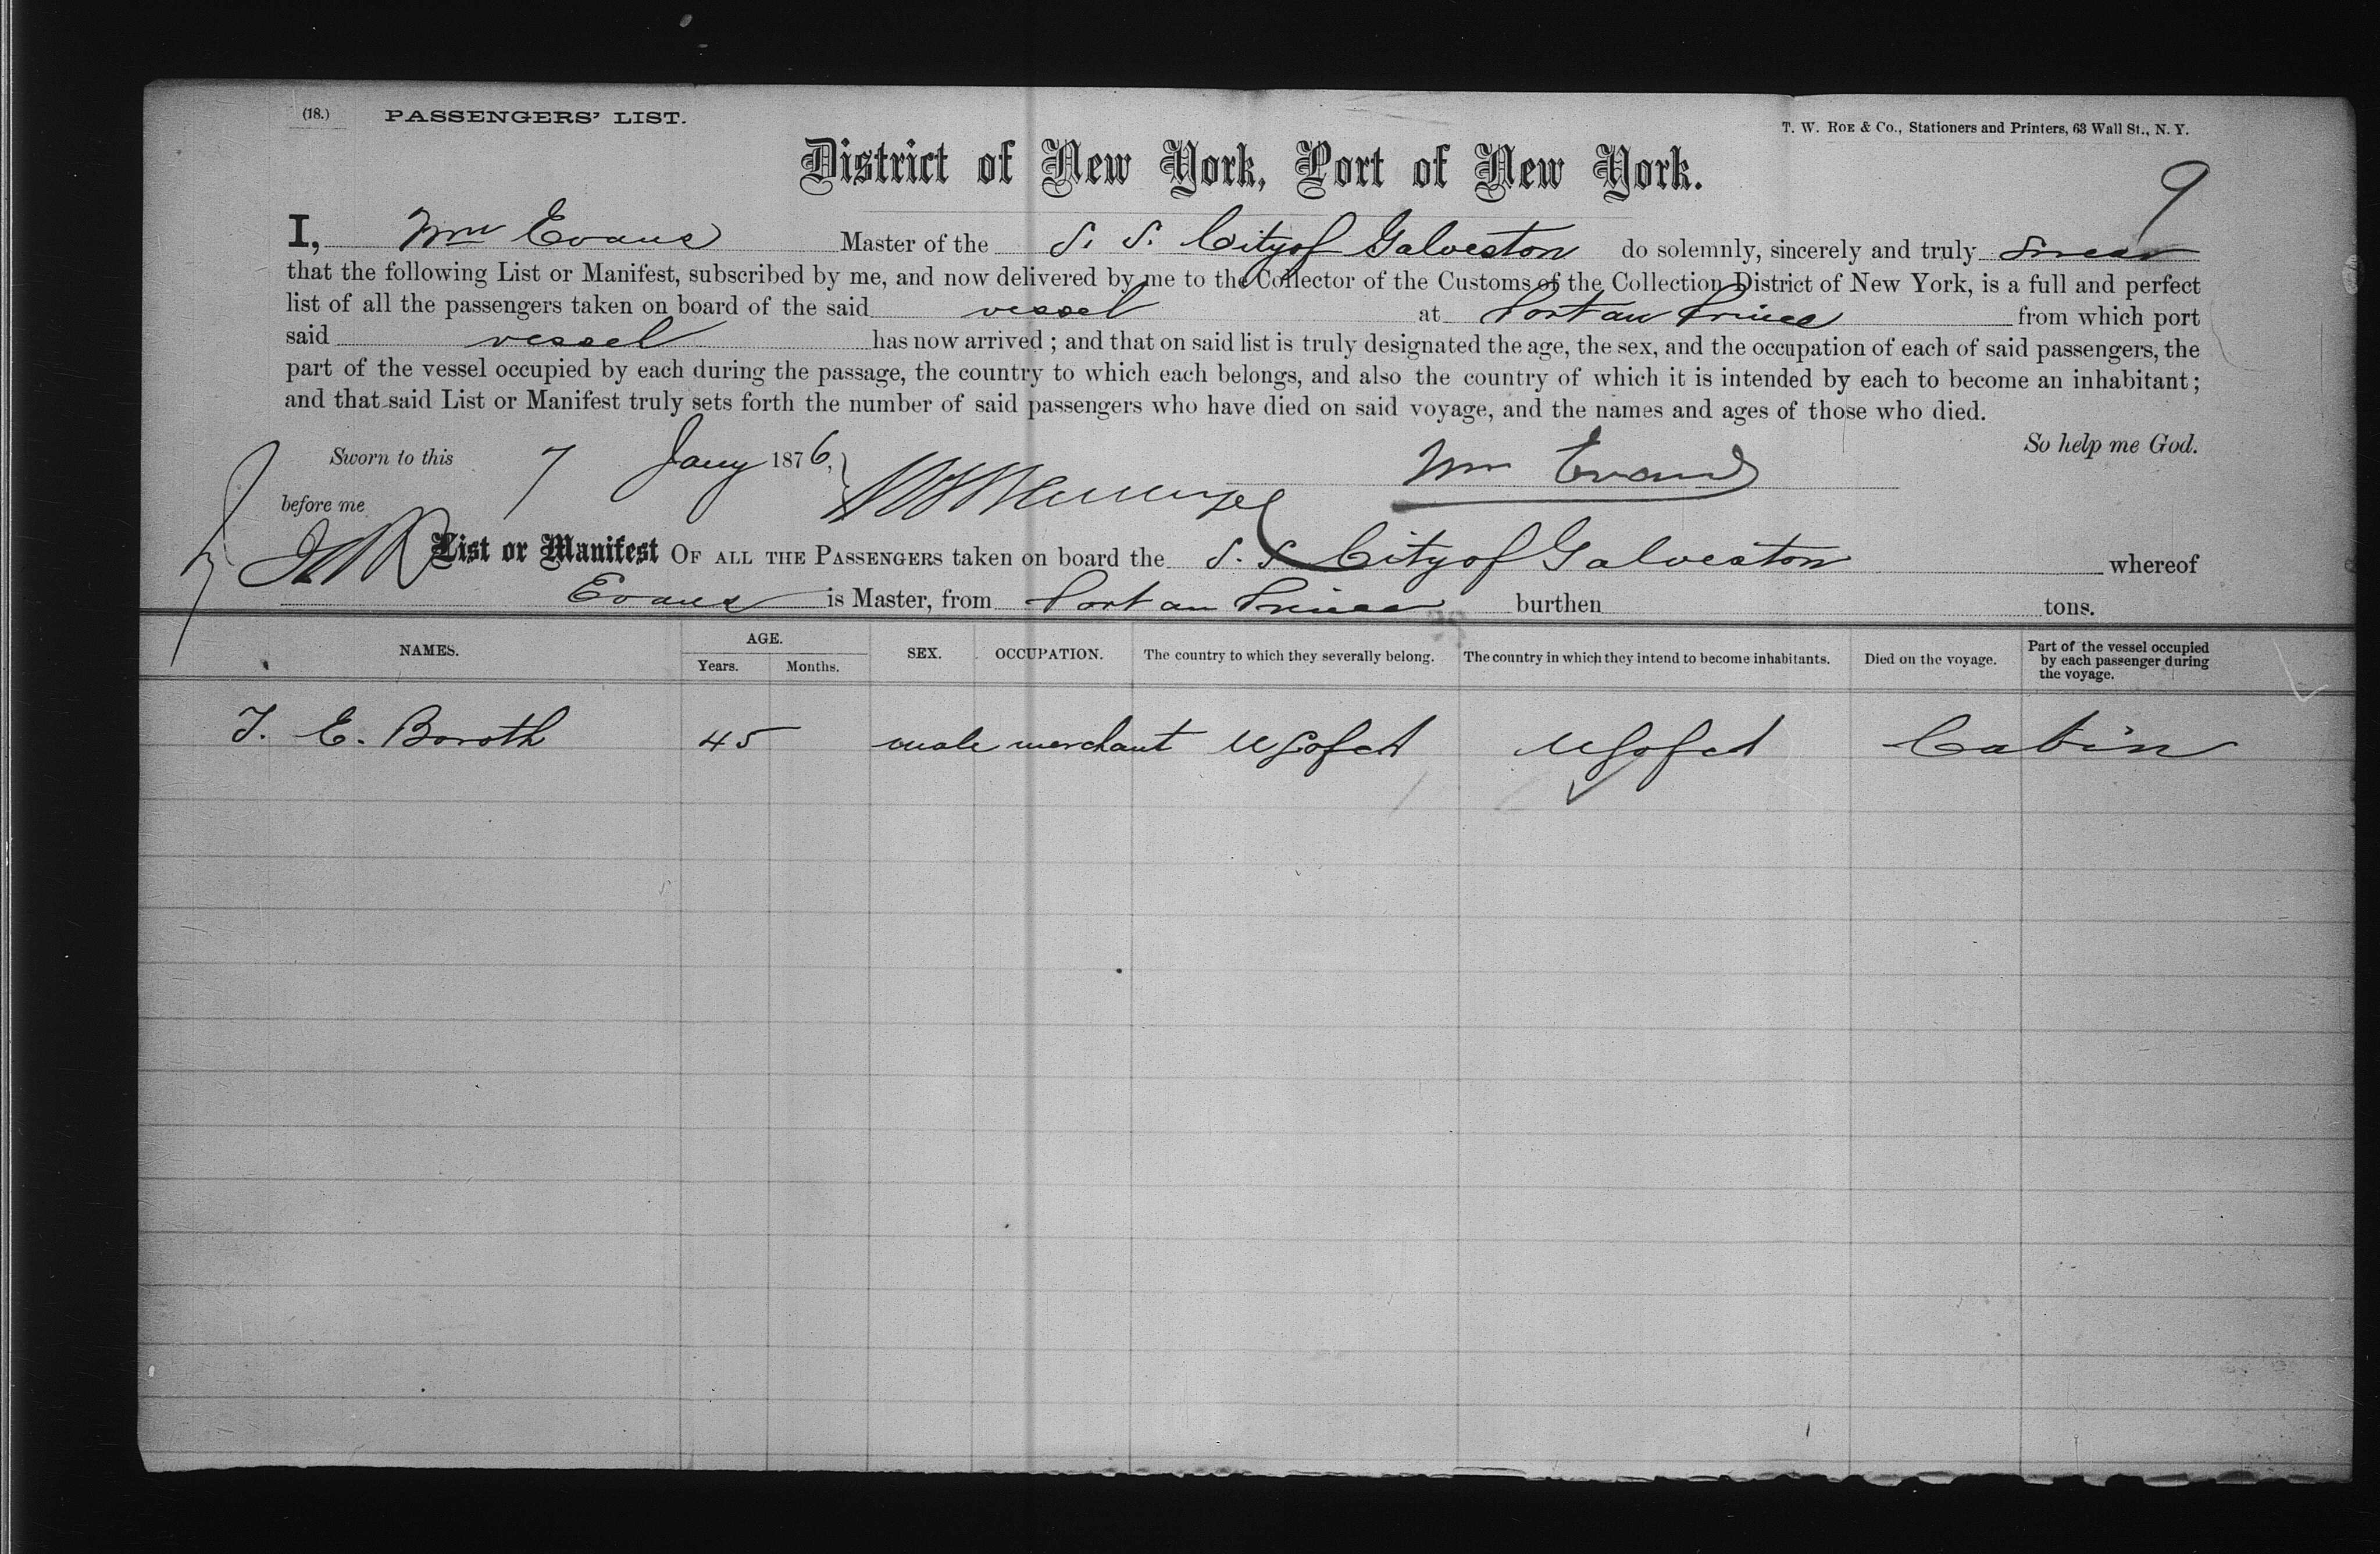 (18.) PASSENGERS' LIST.
T. W. ROE & Co., Stationers and Printers, 63 Wall St., N. Y.
9
District of New York, Port of New York.
I, Wm Evans Master of the S. S. City of Galveston do solemnly, sincerely and truly swear
that the following List or Manifest, subscribed by me, and now delivered by me to the Collector of the Customs of the Collection District of New York, is a full and perfect
list of all the passengers taken on board of the said vessel at Port au Prince from which port
said vessel has now arrived ; and that on said list is truly designated the age, the sex, and the occupation of each of said passengers, the
part of the vessel occupied by each during the passage, the country to which each belongs, and also the country of which it is intended by each to become an inhabitant ;
and that said List or Manifest truly sets forth the number of said passengers who have died on said voyage, and the names and ages of those who died.
So help me God.
Sworn to this 7 Jany 1876,
Wm Evans
before me
List or Manifest OF ALL THE PASSENGERS taken on board the S. S City of Galveston whereof
Evans is Master, from Port au Prince burthen tons.
NAMES. AGE. Years. Months. SEX. OCCUPATION. The country to which they severally belong. The country in which they intend to become inhabitants. Died on the voyage. Part of the vessel occupied by each passenger during the voyage.
E. 45 male merchant US of A US of A Cabin